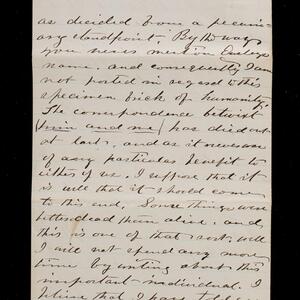 as decided from a pecuni-
ary standpoint. By the way
you never mention Evelyn
name, and consequently I am
not posted in regard to this
specimen brick of humanity.
The correspondence betwixt
him and me has died out
at last, and as it never was
of any particular benefit to
either of us, I suppose that it
is well that it should come
to this end. Some things were
better dead than alive, and
this is one of that sort, well
I will not spend any more
time by writing about this
important individual. I
believe that I have